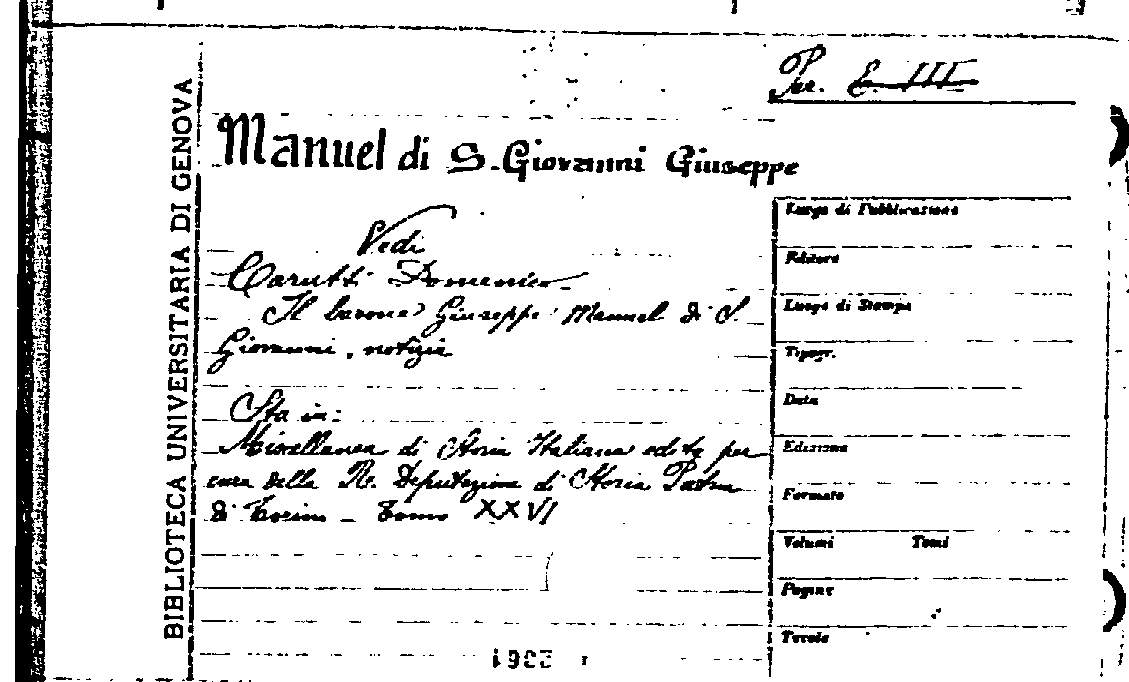 Per. E. III
Manuel di S. Giovanni Giuseppe
Vedi
Carutti Domenico
Il barone Giuseppe Manuel di S.
Giovanni, notizia
Sta in:
Miscellanea di Storia Italiana edita per
cura della R. Deputazione di Storia Patria
di Torino - Tomo XXVI
BIBLIOTECA UNIVERSITARIA DI GENOVA
Luogo di Pubblicazione
Editore
Luogo di Stampa
Tipogr.
Data
Edizione
Formato
Volumi Tomi
Pagine
Tavole